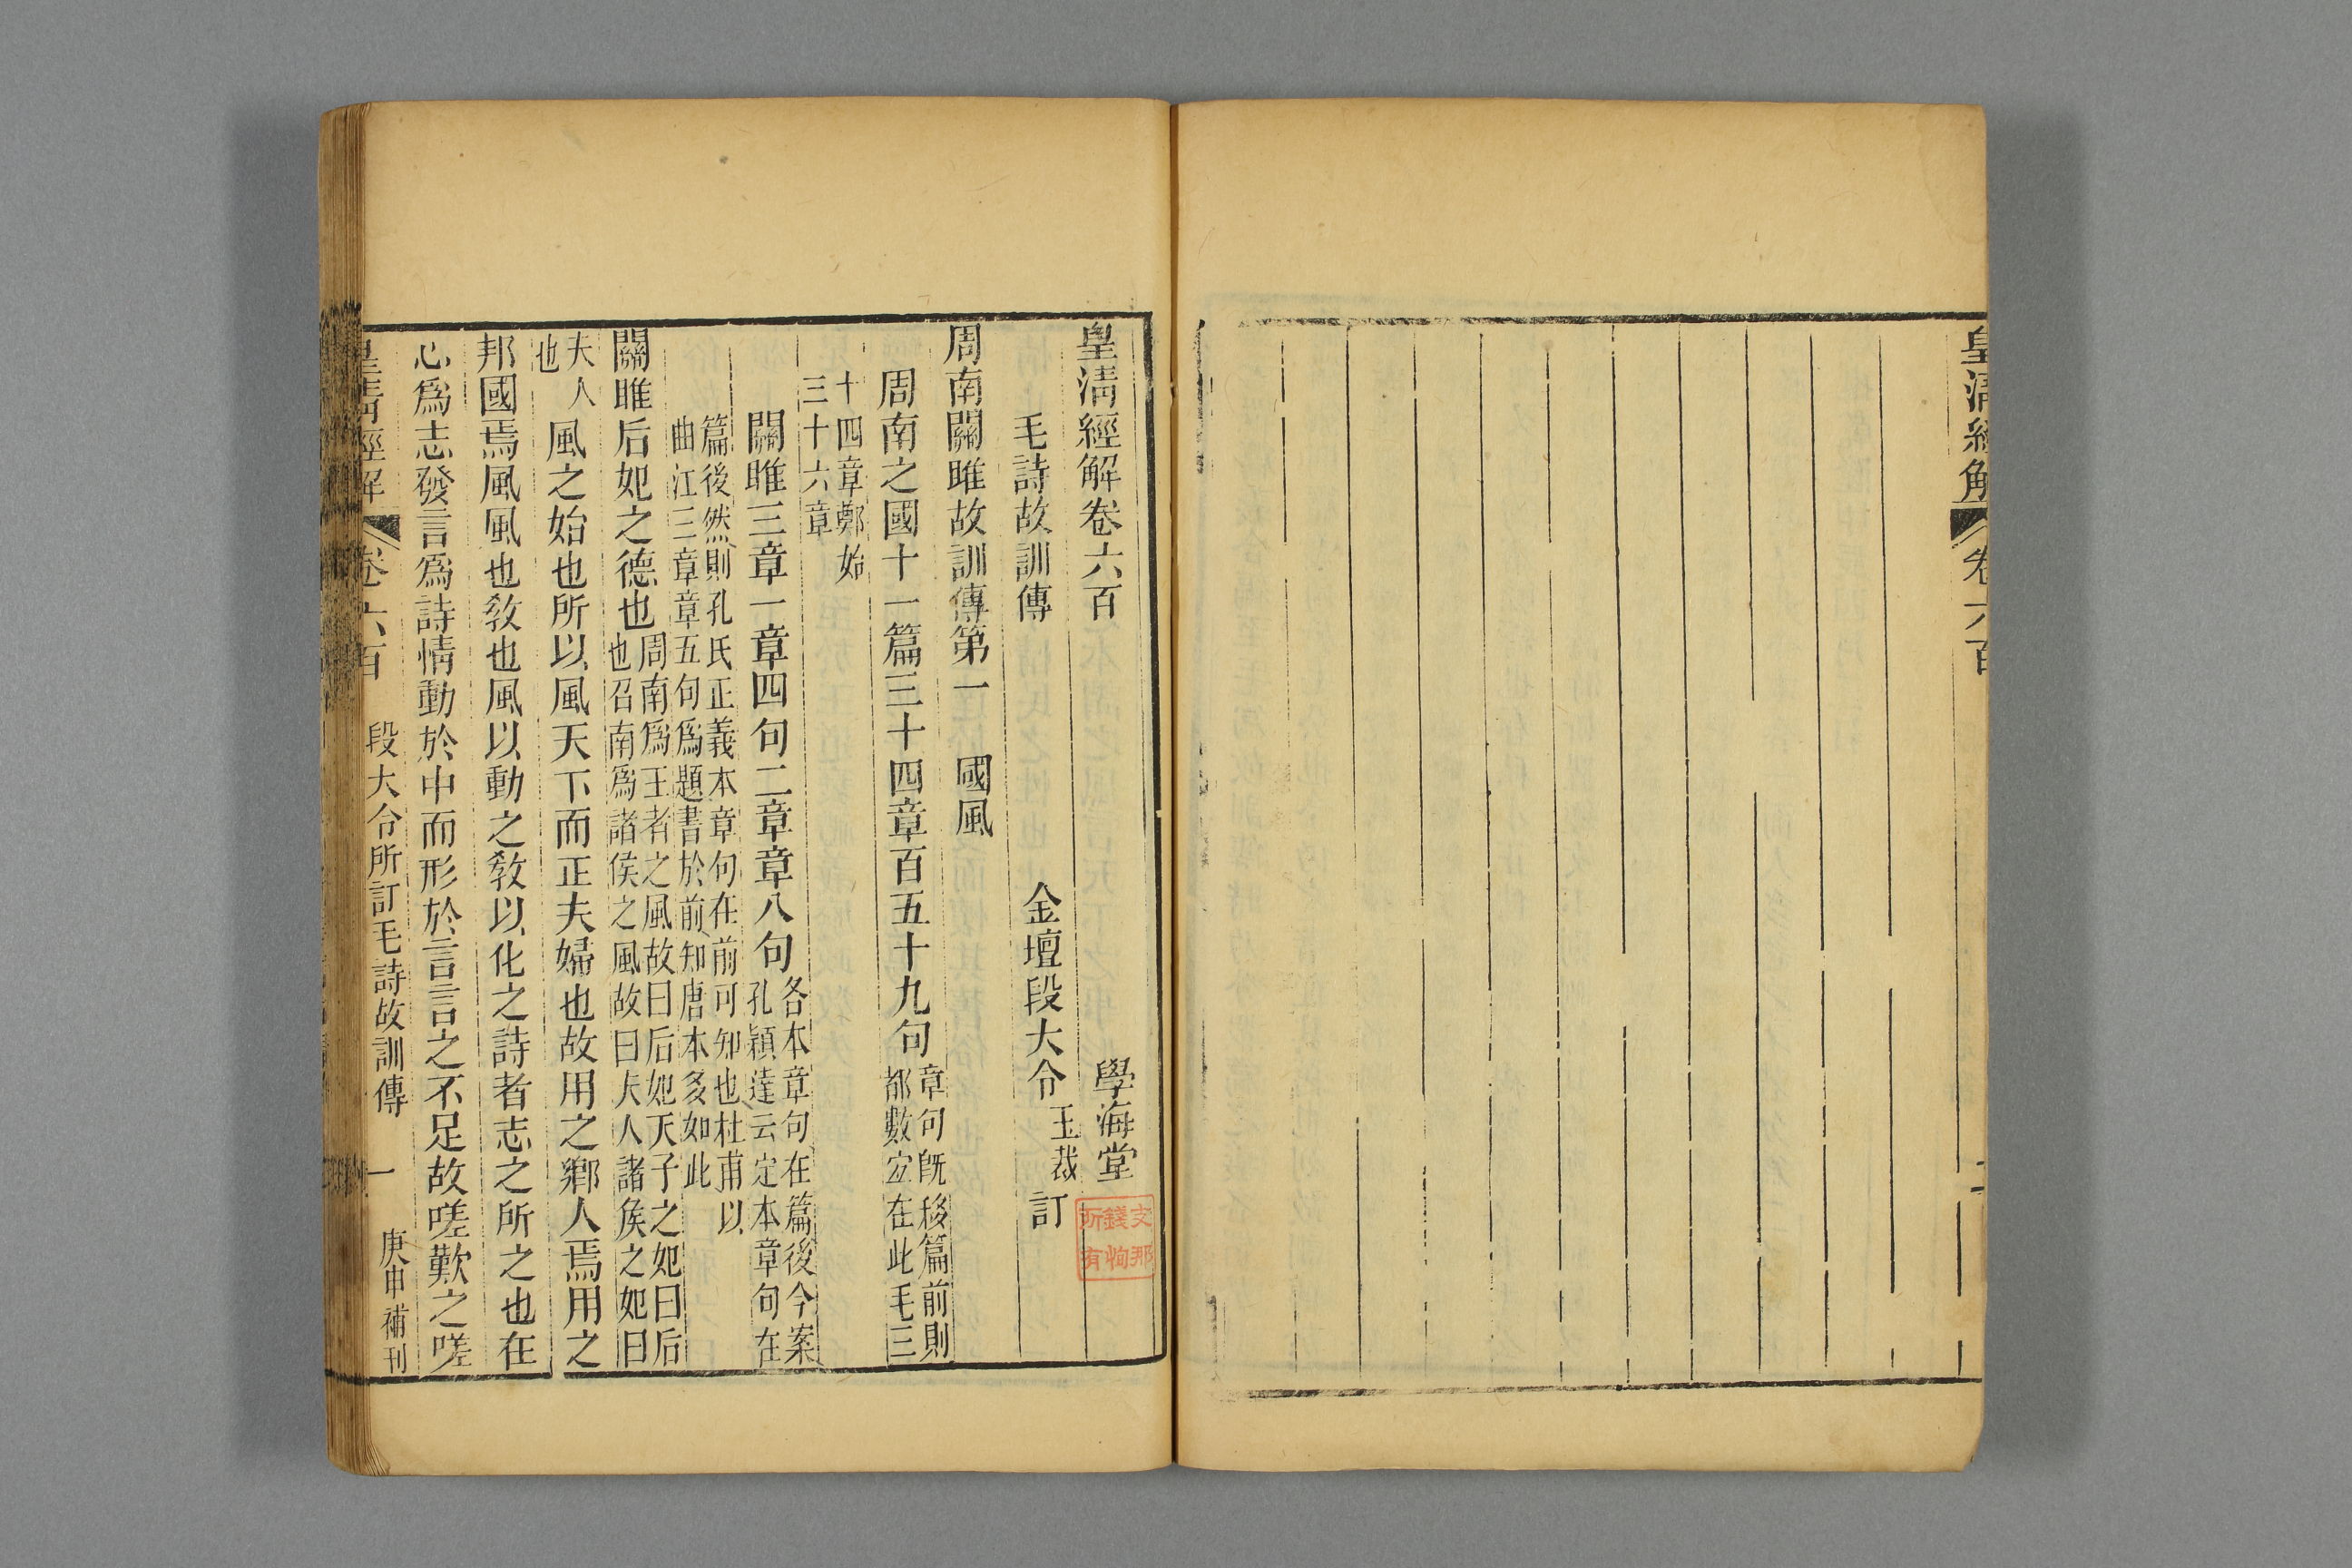 皇清經解
卷六百
皇清經解卷六百
學海堂
毛詩故訓傳
金壇段大令玉裁訂
周南關雎故訓傳第一
國風
周南之國十一篇三十四章百五十九句
章句旣移篇前則
都數宜在此毛三
十四章鄭始
三十六章
關雎三章一章四句二章章八句
各本章句在篇後今案
孔穎達云定本章句在
篇後然則孔氏正義本章句在前可知也杜甫以
曲江三章章五句爲題書於前知唐本多如此
關雎后妃之德也
周南爲王者之風故曰后妃天子之妃曰后
也召南爲諸侯之風故曰夫人諸矦之妃曰
夫人
也
風之始也所以風天下而正夫婦也故用之鄉人焉用之
邦國焉風風也敎也風以動之敎以化之詩者志之所之也在
心爲志發言爲詩情動於中而形於言言之不足故嗟歎之嗟
皇淸經解
卷六百
段大令所訂毛詩故訓傳
一
庚申補刊
支那
錢恂
所有